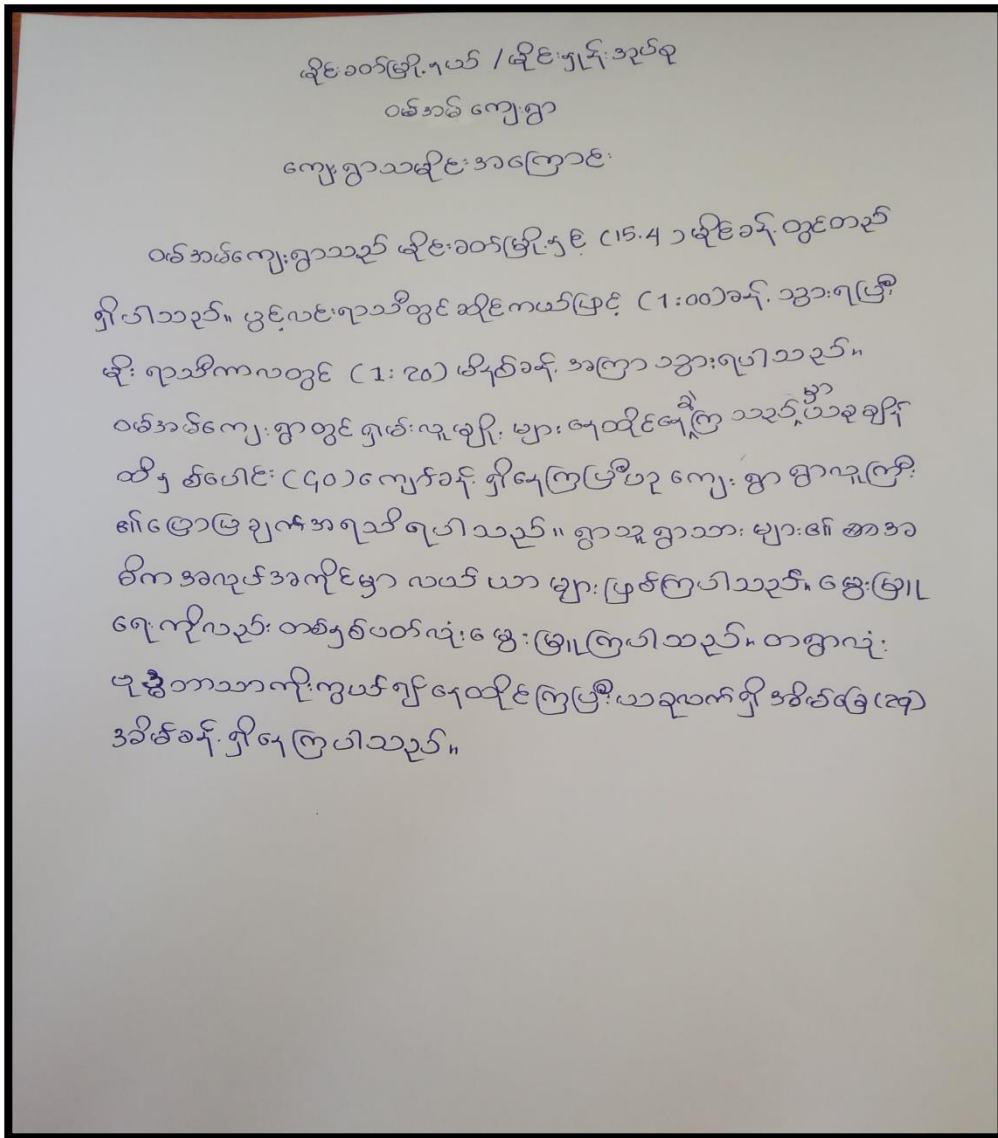 မိုင်းခတ်မြို့နယ် / မိုင်းဟွန်းအုပ်စု
ဝမ်အမ် ကျေးရွာ
ကျေးရွာသမိုင်းအကြောင်း
ဝမ်အမ်ကျေးရွာသည် မိုင်းခတ်မြို့နှင့် (15.4) မိုင်ခန့် တွင်တည်
ရှိပါသည်။ ပွင့်လင်းရာသီတွင် ဆိုင်ကယ်ဖြင့် (1:00)ခန့် သွားရပြီး
မိုး ရာသီကာလတွင် (1:20) မိနစ်ခန့် အကြာ သွားရပါသည်။
ဝမ်အမ်ကျေးရွာတွင် ရှမ်းလူမျိုး များ နေထိုင်နေခဲ့ကြ သည်မှာ ယခုချိန်
ထိ နှစ်ပေါင်း (၄၀)ကျော်ခန့် ရှိနေကြပြီဟု ကျေးရွာ ရွာလူကြီး
၏ပြောပြချက်အရသိရပါသည်။ ရွာသူရွာသား များ၏ အ
ဓိကအလုပ်အကိုင်မှာ လယ် ယာ များ ဖြစ်ကြပါသည်။ မွေးမြူ
ရေးကိုလည်း တစ်နှစ်ပတ်လုံး မွေးမြူကြပါသည်။ တရွာလုံး
ဗုဒ္ဓဘာသာကိုးကွယ်၍ နေထိုင်ကြပြီး ယခုလက်ရှိ အိမ်ခြေ(၃၅)
အိမ်ခန့် ရှိနေကြပါသည်။